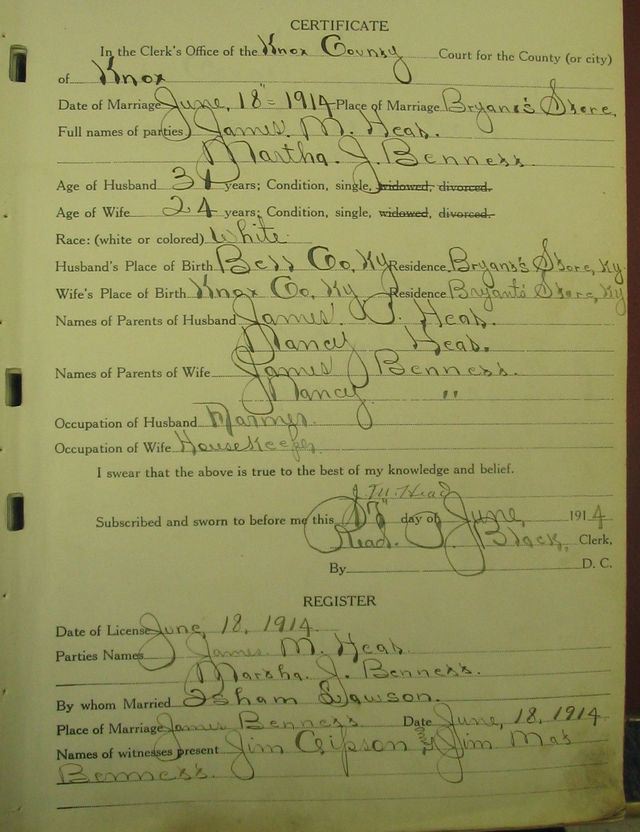 CERTIFICATE
In the Clerk's Office of the Knox County Court for the County (or city)
of Knox
Date of Marriage June, 18" = 1914 Place of Marriage Bryant's Store,
Full names of parties James. M. Head.
Martha. J. Bennett.
Age of Husband 31 years; Condition, single, widowed, divorced.
Age of Wife 24 years; Condition, single, widowed, divorced.
Race: (white or colored) White
Husband's Place of Birth Bell Co, Ky Residence Bryant's Store, Ky
Wife's Place of Birth Knox Co, Ky Residence Bryant's Store, Ky
Names of Parents of Husband James. Head.
Nancy Head.
Names of Parents of Wife James Bennett.
Nancy "
Occupation of Husband Farmer.
Occupation of Wife HouseKeeper.
I swear that the above is true to the best of my knowledge and belief.
J. M. Head
Subscribed and sworn to before me this 17" day of June, 1914
Read. P. Black, Clerk,
By D. C.
REGISTER
Date of License June, 18, 1914.
Parties Names James M. Head.
Martha. J. Bennett.
By whom Married Isham Lawson.
Place of Marriage James Bennett Date June, 18, 1914
Names of witnesses present Jim Gipson & Jim Mat
Bennett.